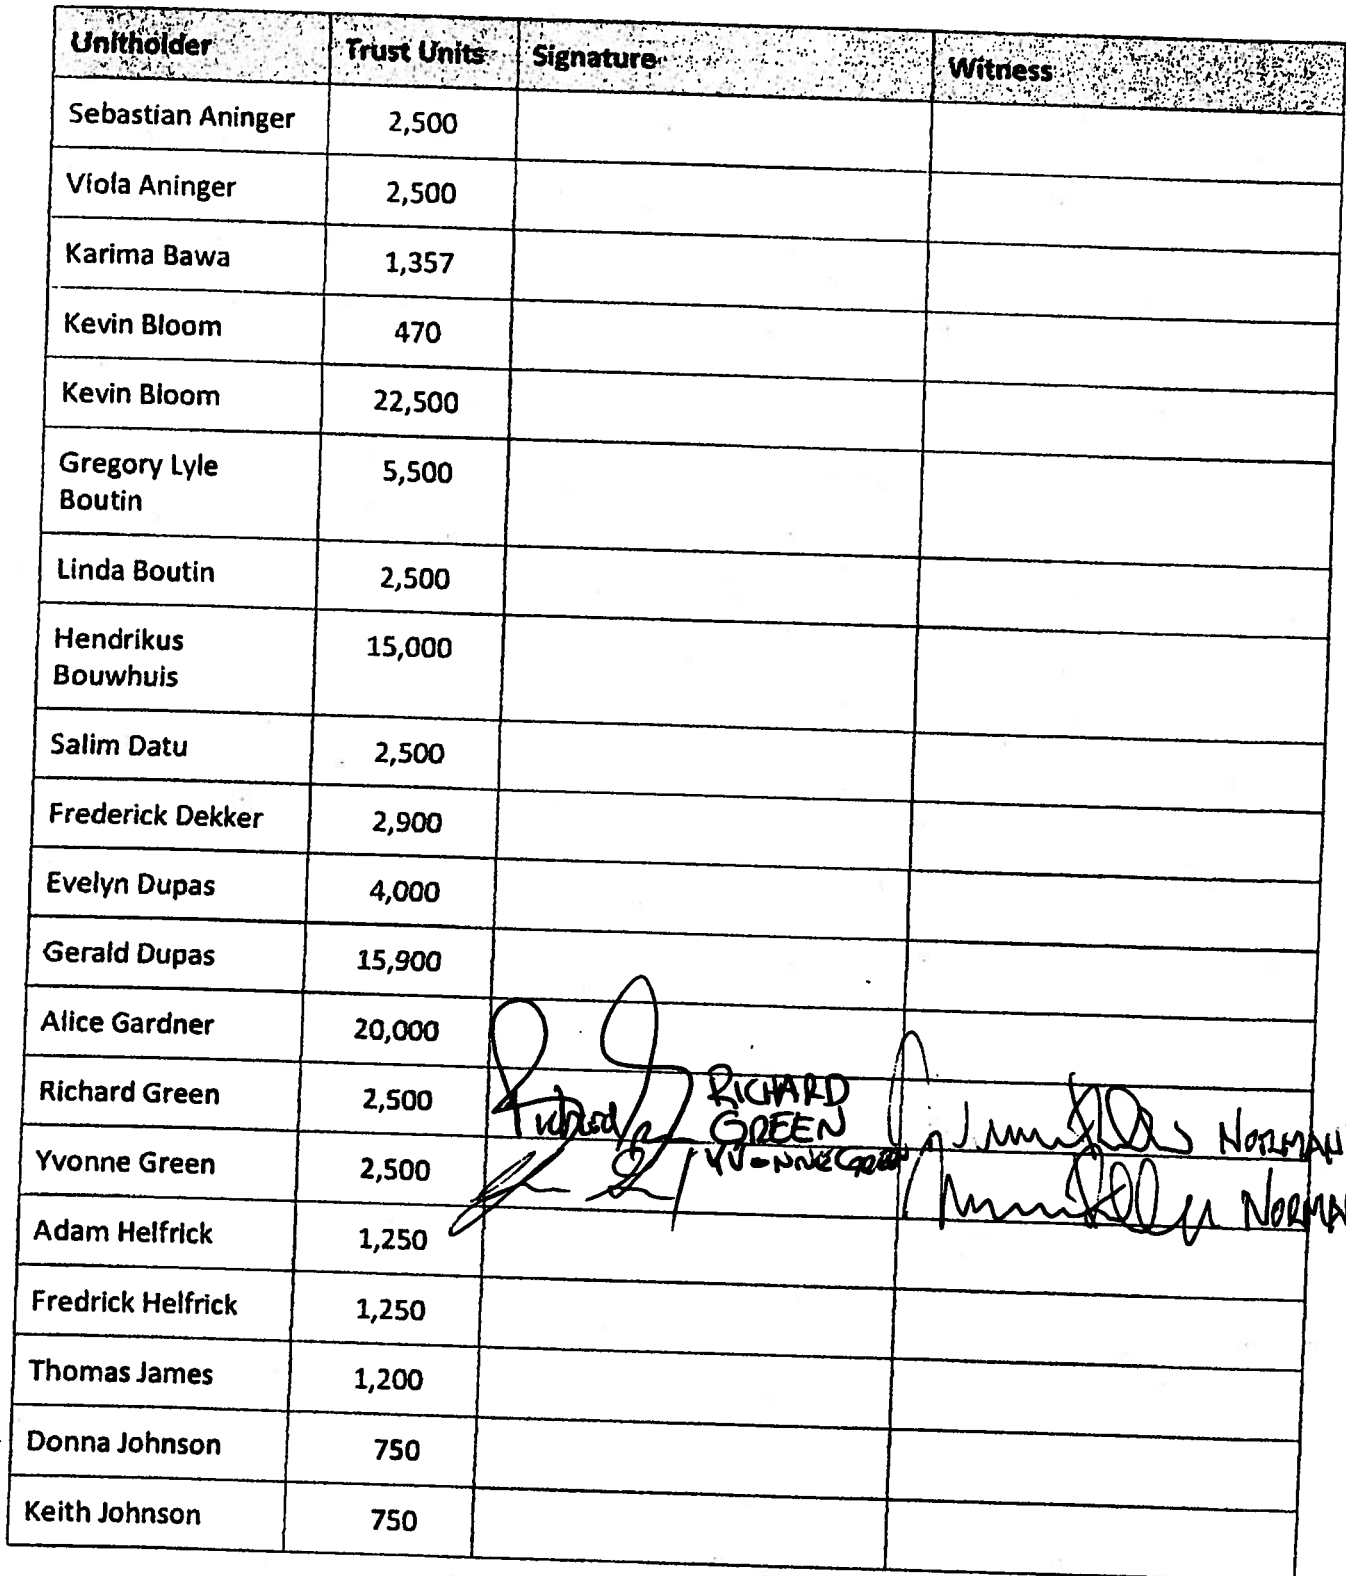 Unitholder Trust Units Signature Witness
Sebastian Aninger 2,500
Viola Aninger 2,500
Karima Bawa 1,357
Kevin Bloom 470
Kevin Bloom 22,500
Gregory Lyle 5,500
Boutin
Linda Boutin 2,500
Hendrikus 15,000
Bouwhuis
Salim Datu 2,500
Frederick Dekker 2,900
Evelyn Dupas 4,000
Gerald Dupas 15,900
Alice Gardner 20,000
Richard Green 2,500 RICHARD
GREEN NORMAN
Yvonne Green 2,500 YVONNE GREEN NORMAN
Adam Helfrick 1,250
Fredrick Helfrick 1,250
Thomas James 1,200
Donna Johnson 750
Keith Johnson 750